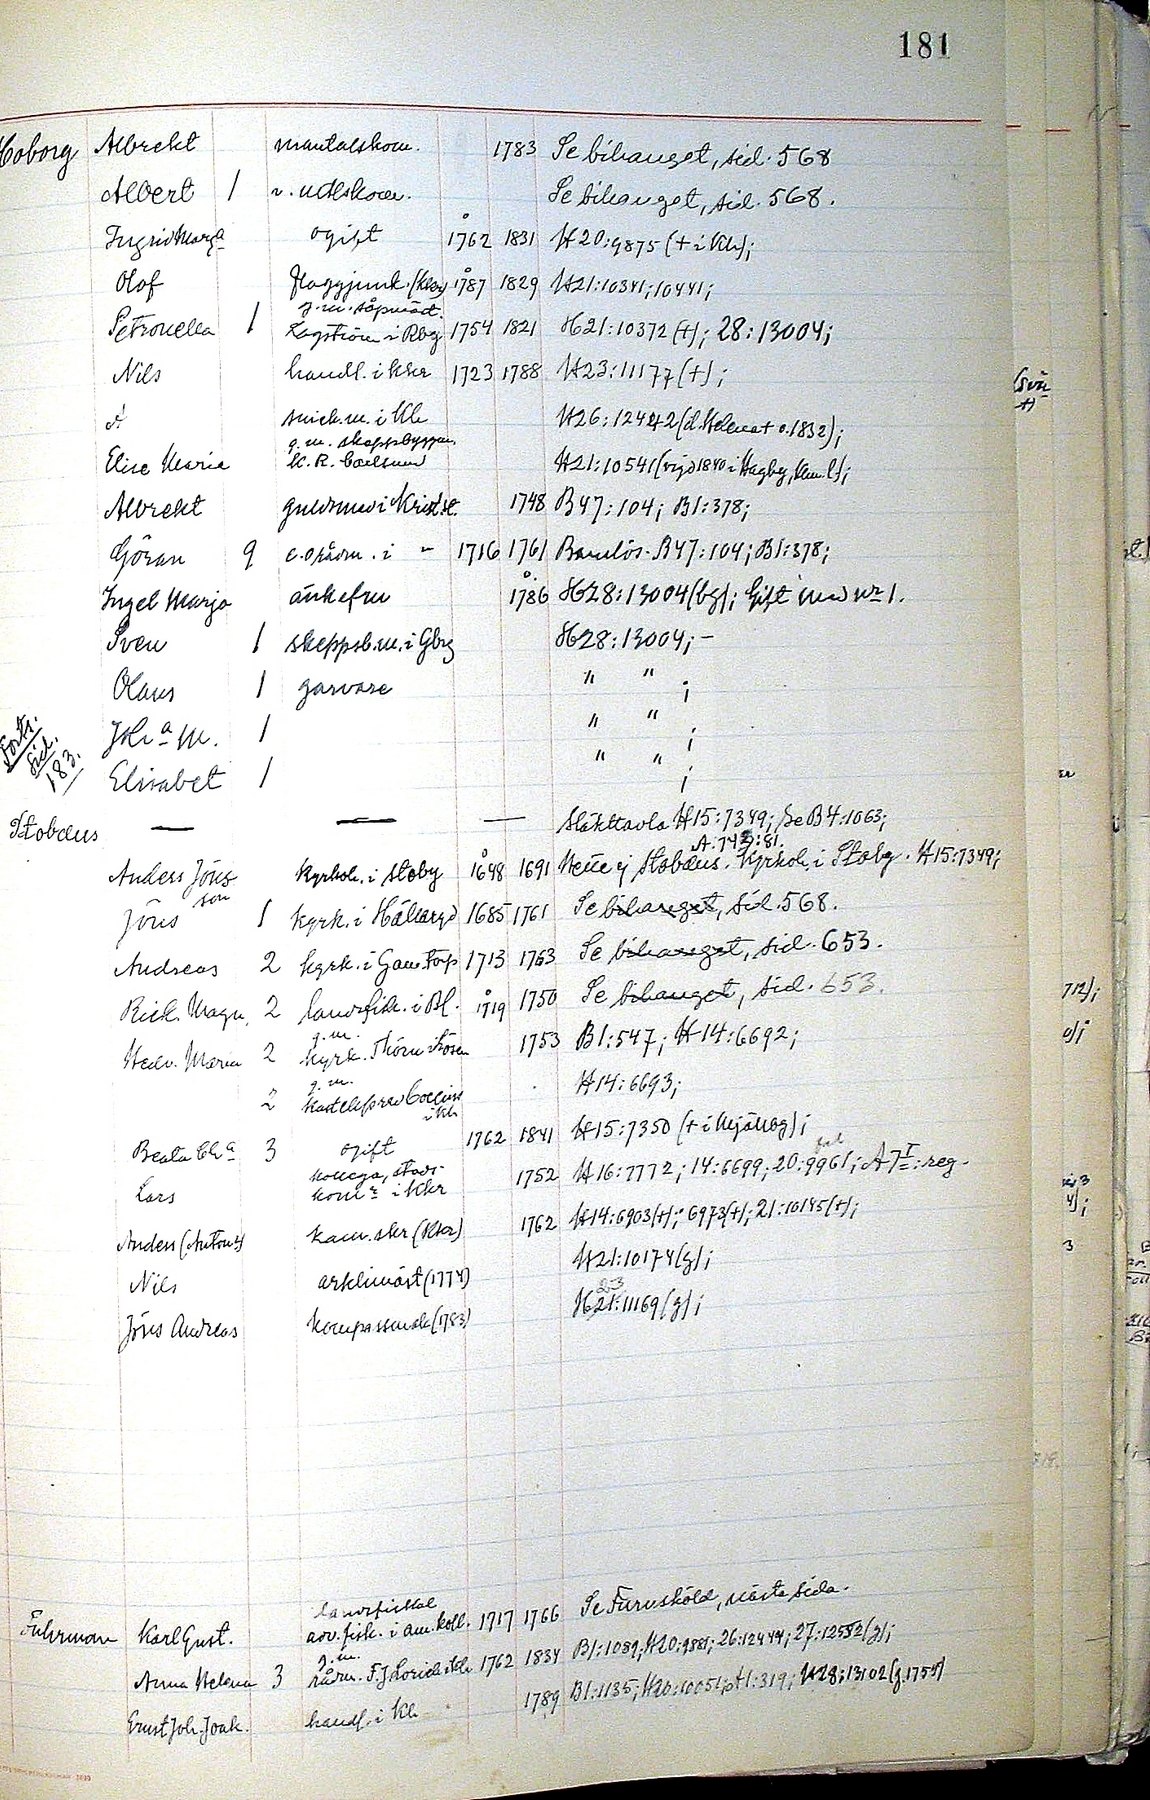 181
Hoborg Albrekt mantalskom. 1783 Se bihanget, sid. 568
Albert 1 Se bihanget, sid. 568.
Ingrid Marga ogift 1762 1831 H20:9875 (+ i Kh);
Olof flaggjunk. 1787 1829 H21:10341; 10441;
g. m.
Petronella 1 i Kbg 1754 1821 H21:10372 (+); 28:13004;
Nils handl. i Kkr 1723 1788 H23:11177 (+);
snick.m. i Kh H26:12442 (d. Helena + o. 1832);
g. m. skeppsbyggm.
Elise Maria H21:10541 (vigd 1840 i Hagby, Km.l);
Albrekt guldsmed i Krist.st. 1748 B47:104; B1:378;
Göran 9 i 1716 1761 Barnlös. B47:104; B1:378;
Ingel Marja änkefru 1786 H28:13004 (bg); Gift med nr 1.
Sven 1 skeppsb.m. i Gbg H28:13004; –
Olaus 1 garvare " " ;
Joh a M. 1 " " ;
Elisabet 1 " " ;
Forts.
sid.
183.
Stobæus — — — Släkttavla H15:7349; se B4:1063;
A:743:81.
Anders Jöns kyrkoh. i Stoby 1648 1691 Hette ej Stobæus. Kyrkoh. i Stoby. H15:7349;
son
Jöns 1 kyrk. i Hällaryd 1685 1761 Se bihanget, sid. 568.
Andreas 2 kyrk. i Gam.torp 1713 1763 Se bihanget, sid. 653.
Rick. Magn. 2 landsfisk. i Bl. 1719 1750 Se bihanget, sid. 653.
g. m.
Hedv. Maria 2 kyrk. Thörn i 1753 B1:547; H14:6692;
g. m.
2 H14:6693;
i Kh
Beata Cha 3 ogift 1762 1841 H15:7350 (+ i Mjällby);
kollega, stads-
Lars kom:r i Kkr 1752 H16:7772; 14:6699; 20:9961; A7I:reg.
Anders (Anton?) kam.skr (Kkr) 1762 H14:6903 (+); 6973 (+); 21:10145 (+);
Nils arklimäst (1774) H21:10174 (g);
23
Jöns Andreas kompassmak (1783) H21:11169 (g);
landsfiskal
Fuhrman Karl Gust. adv.fisk. i am.koll. 1717 1766 Se Furusköld, nästa sida.
g. m.
Anna Helena 3 rådm. F. J. i Kh 1762 1834 B1:1089; H20:9881; 26:12444; 27:12552 (g);
Ernst Joh. Joak. handl. i Kh 1789 B1:1135; H20:10051; A1:319; H28:13102 (g. 1755)